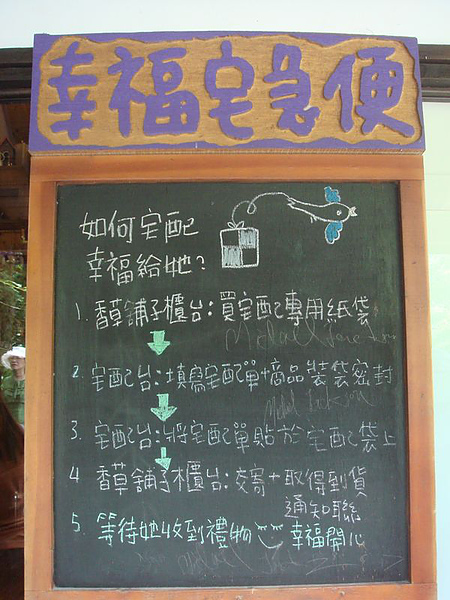 幸福宅急便
如何宅配
幸福給她?
1. 香草舖子櫃台:買宅配專用紙袋
2. 宅配台:填寫宅配單+商品裝袋密封
3. 宅配台:將宅配單貼於宅配袋上
4 香草舖子櫃台:交寄+取得到貨
通知聯
5. 等待她收到禮物 幸福開心